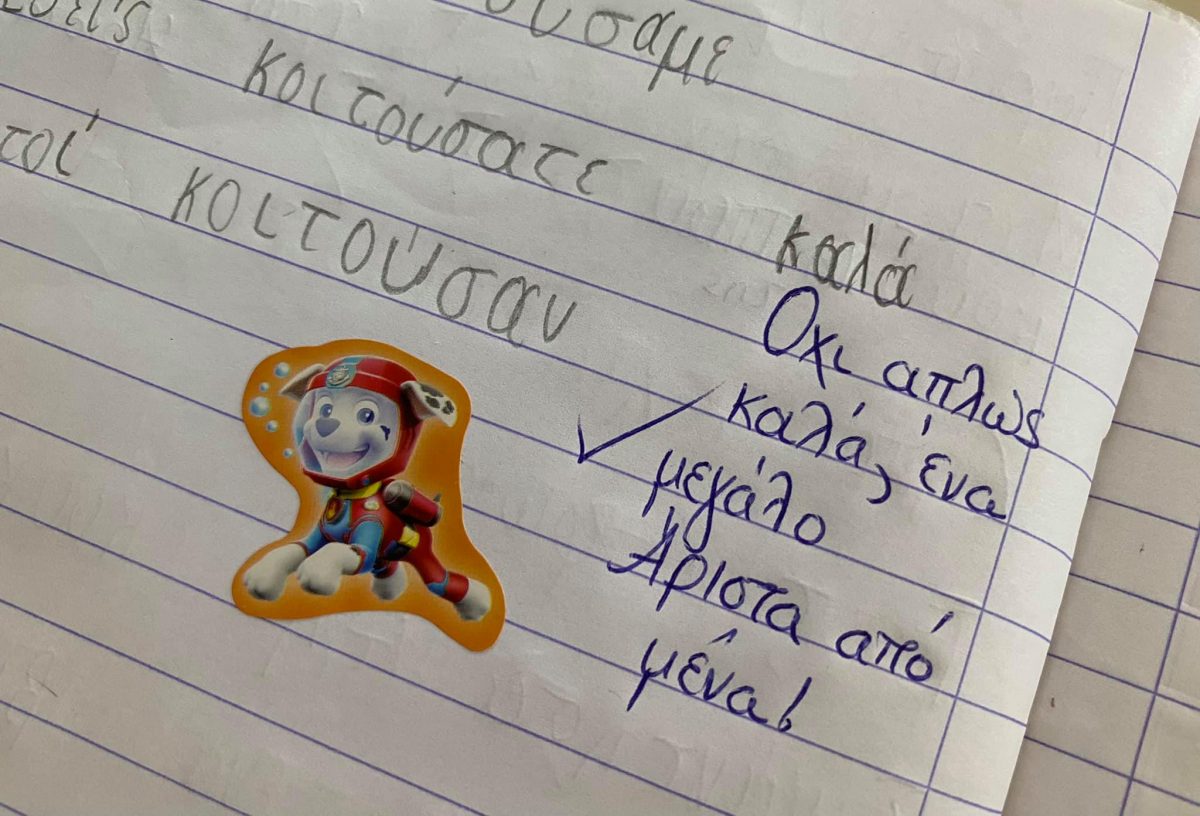 ούσαμε
κοιτούσατε
τοί κοιτούσαν
καλά
Όχι απλώς
καλά, ένα
μεγάλο
Άριστα από
μένα!